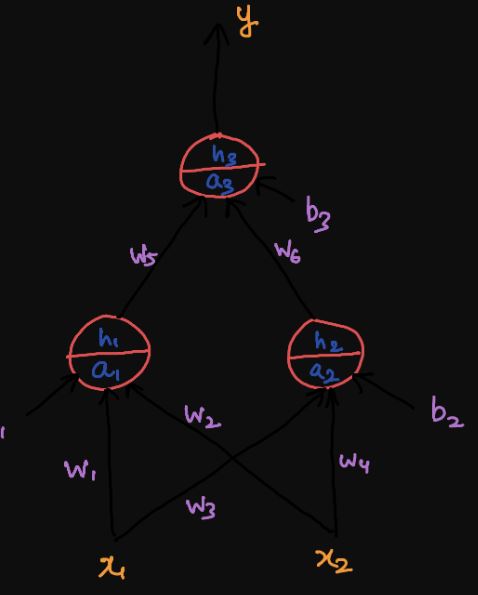 y
h₃
a₃
b₃
w₅
w₆
h₁
a₁
h₂
a₂
w₂
b₂
1
w₁
w₄
w₃
x₁
x₂